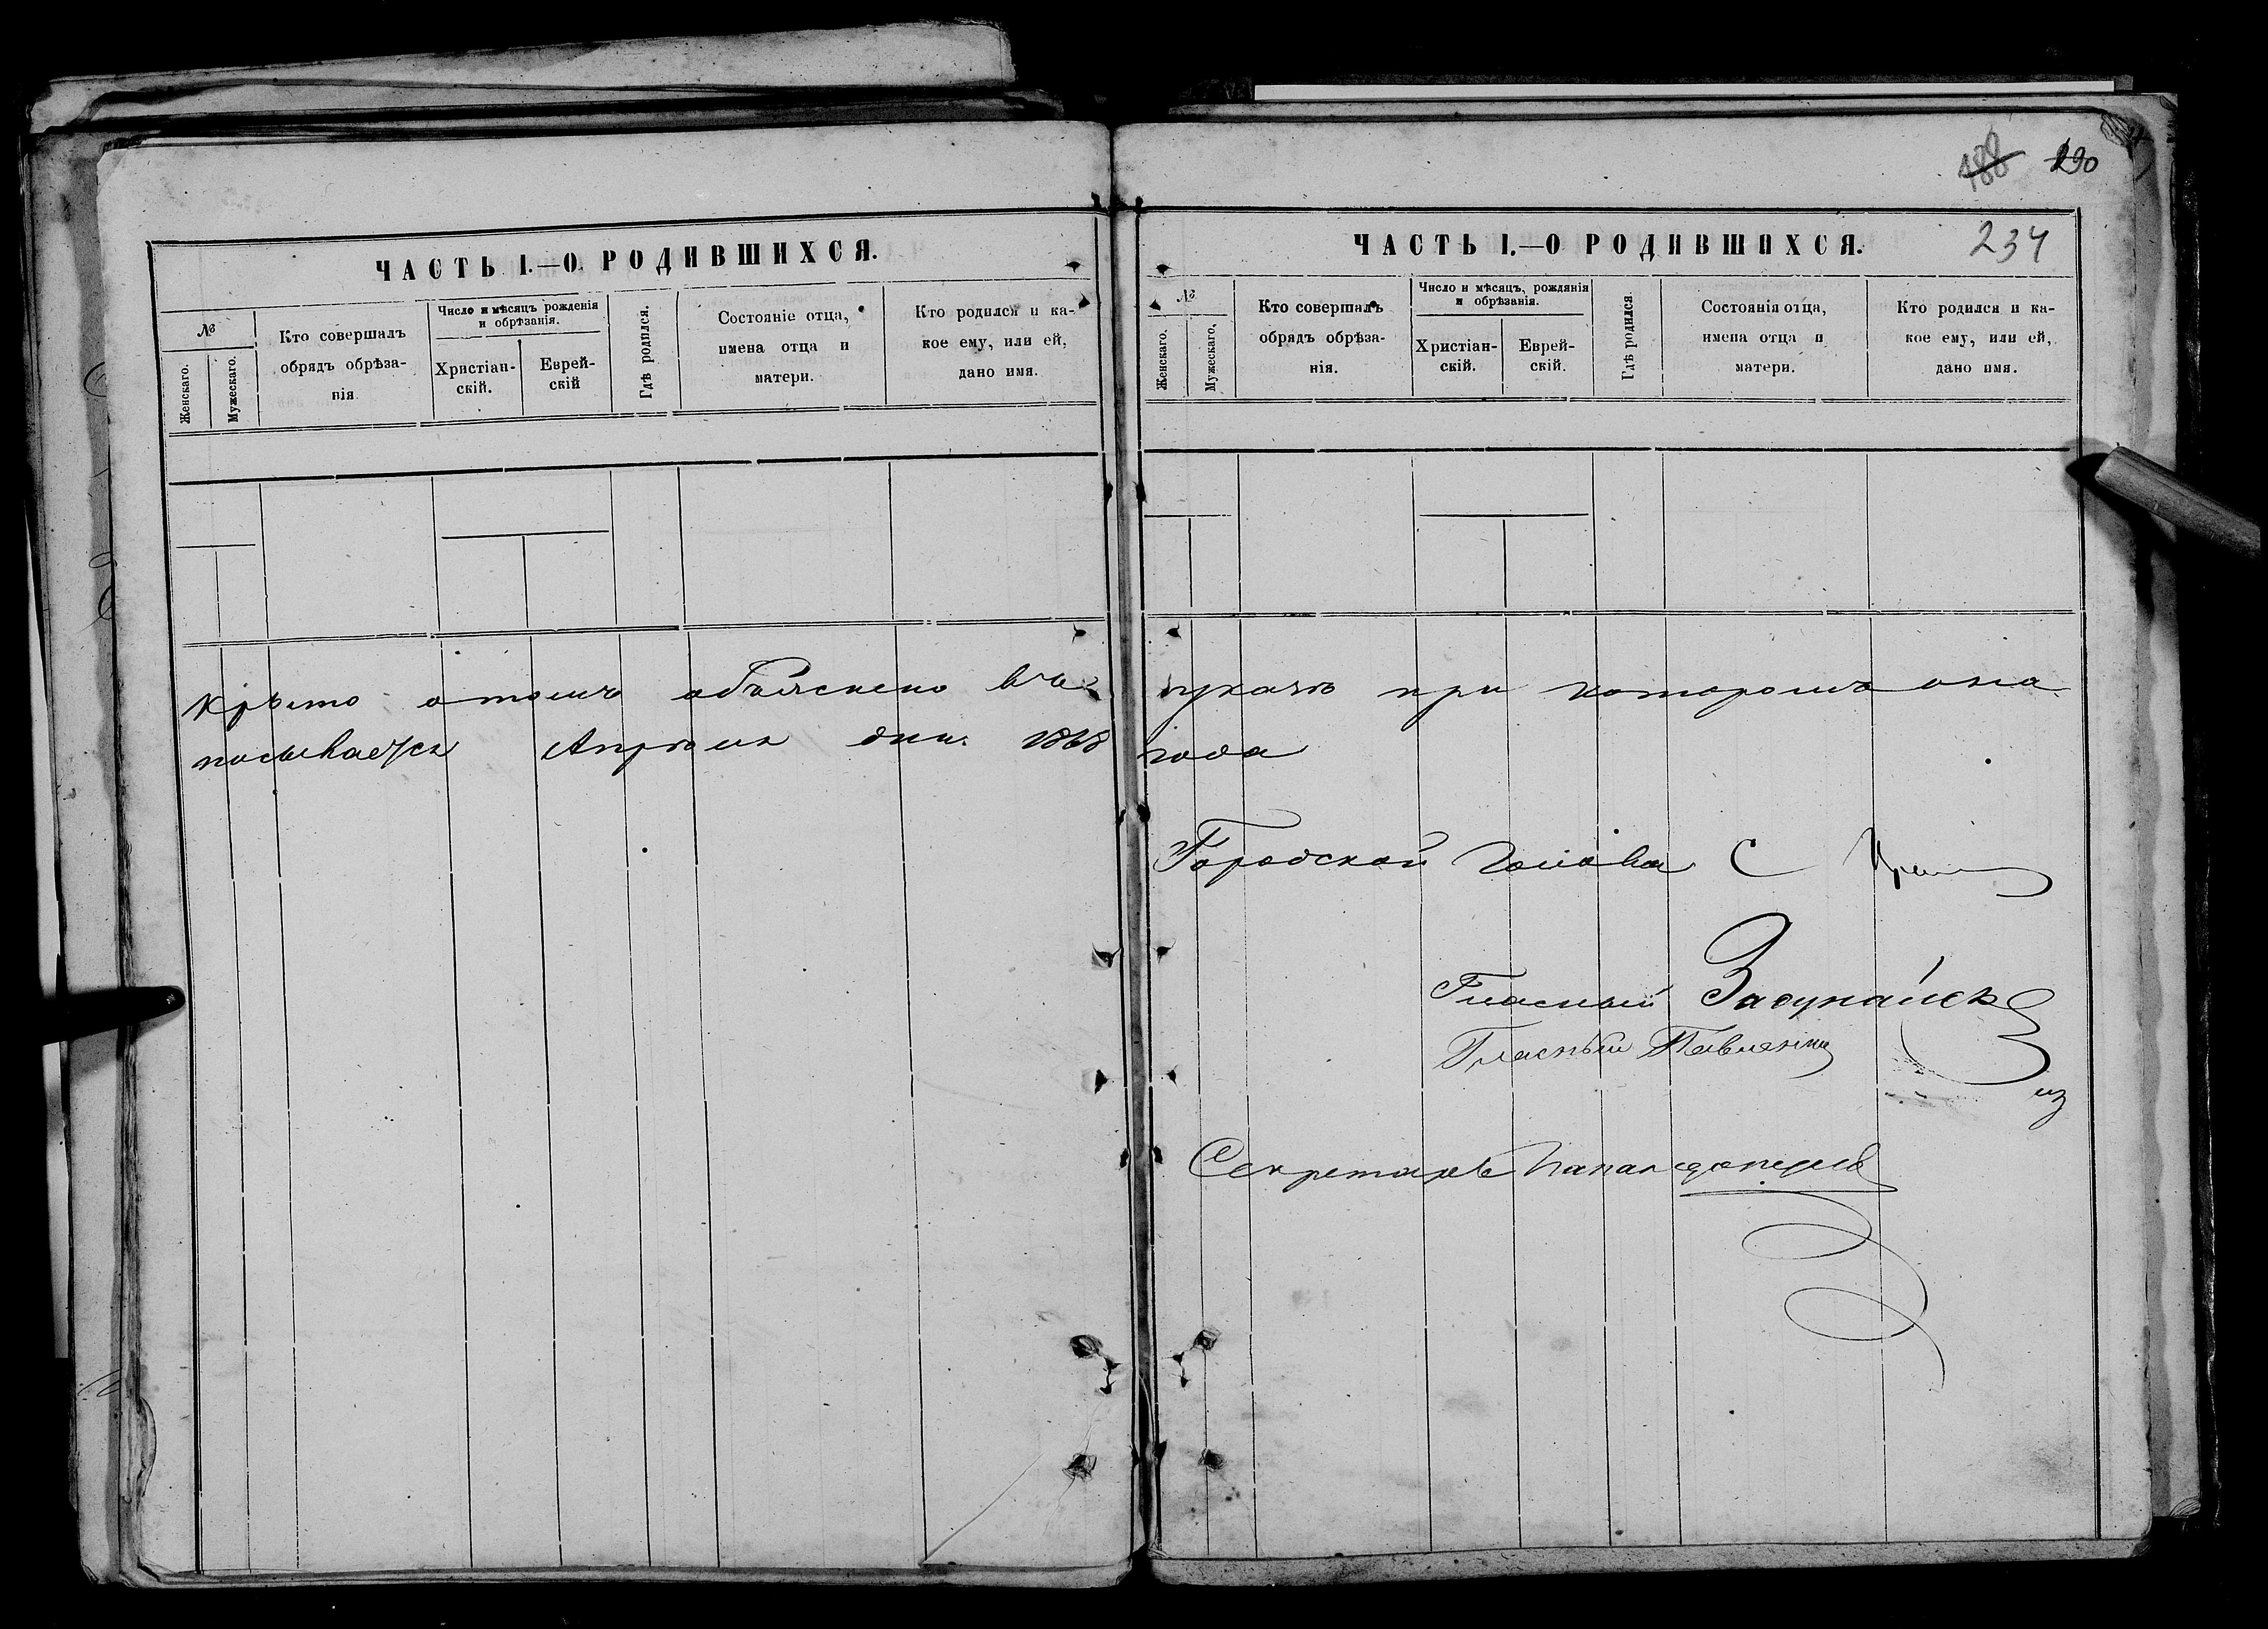 188 190
ЧАСТЬ I.—О РОДИВШИХСЯ.
№
Женскаго.
Мужескаго.
Кто совершалъ
обрядъ обрѣза-
нія
Число и мѣсяцъ рожденія
и обрѣзанія.
Христіан-
скій.
Еврей-
скій
Гдѣ родился.
Состояніе отца,
имена отца и
матери.
Кто родился и ка-
кое ему, или ей,
дано имя.
ЧАСТЬ I.—О РОДИВШИХСЯ.
234
№
Женскаго.
Мужескаго.
Кто совершалъ
обрядъ обрѣза-
нія.
Число и мѣсяцъ, рожданія
и обрѣзанія.
Христіан-
скій.
Еврей-
скій.
Гдѣ родился.
Состоянія отца,
имена отца и
матери.
Кто родился и ка-
кое ему, или ей,
дано имя.
отомъ объяснено въ указѣ при которомъ она
посылается Апрѣля дня 1868 года
Городской Голова С
Гласный
Гласный
Секретарь